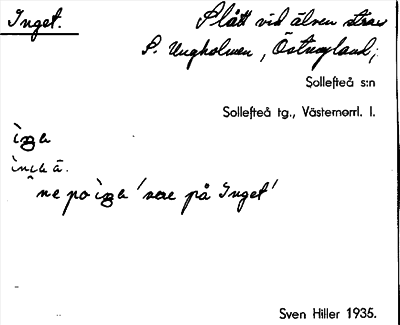 Inget.
Slått vid älven strax
S. Ungholmen, Östnyland,
Sollefteå s:n
Sollefteå tg., Västernorrl. l.
ne po ìŋə 'nere på Inget'
Sven Hiller 1935.